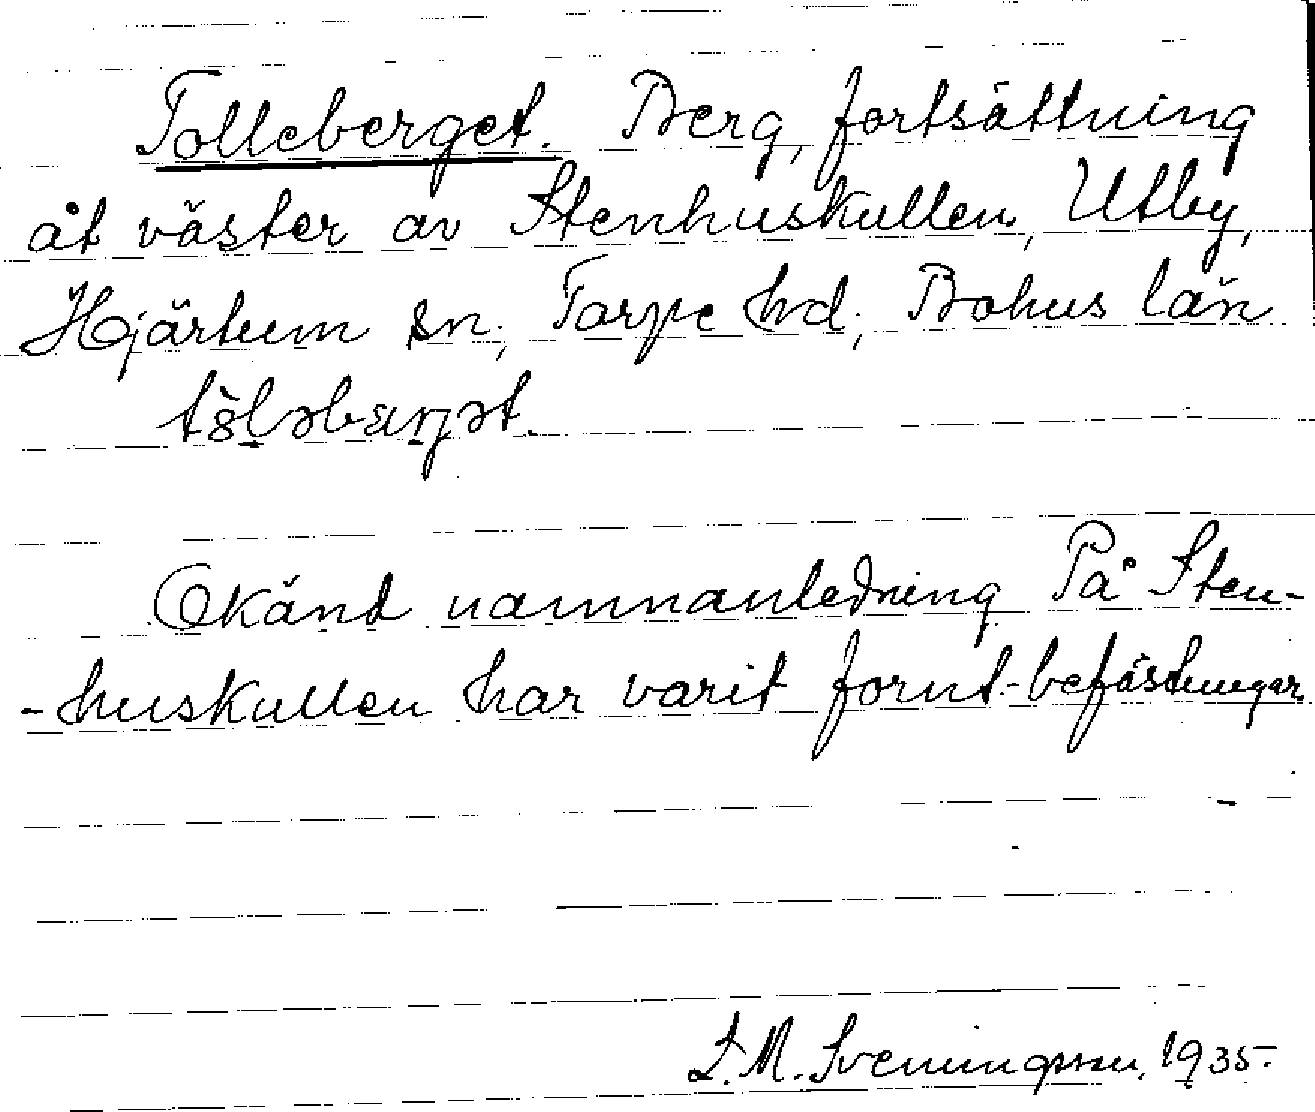 Tolleberget. Berg, fortsättning
åt väster av Stenhuskullen, Utby,
Hjärtum sn, Torpe hd, Bohus län
Okänd namnanledning På Sten-
-huskullen har varit fornt-befästningar.
L. M. Svenningsson, 1935.